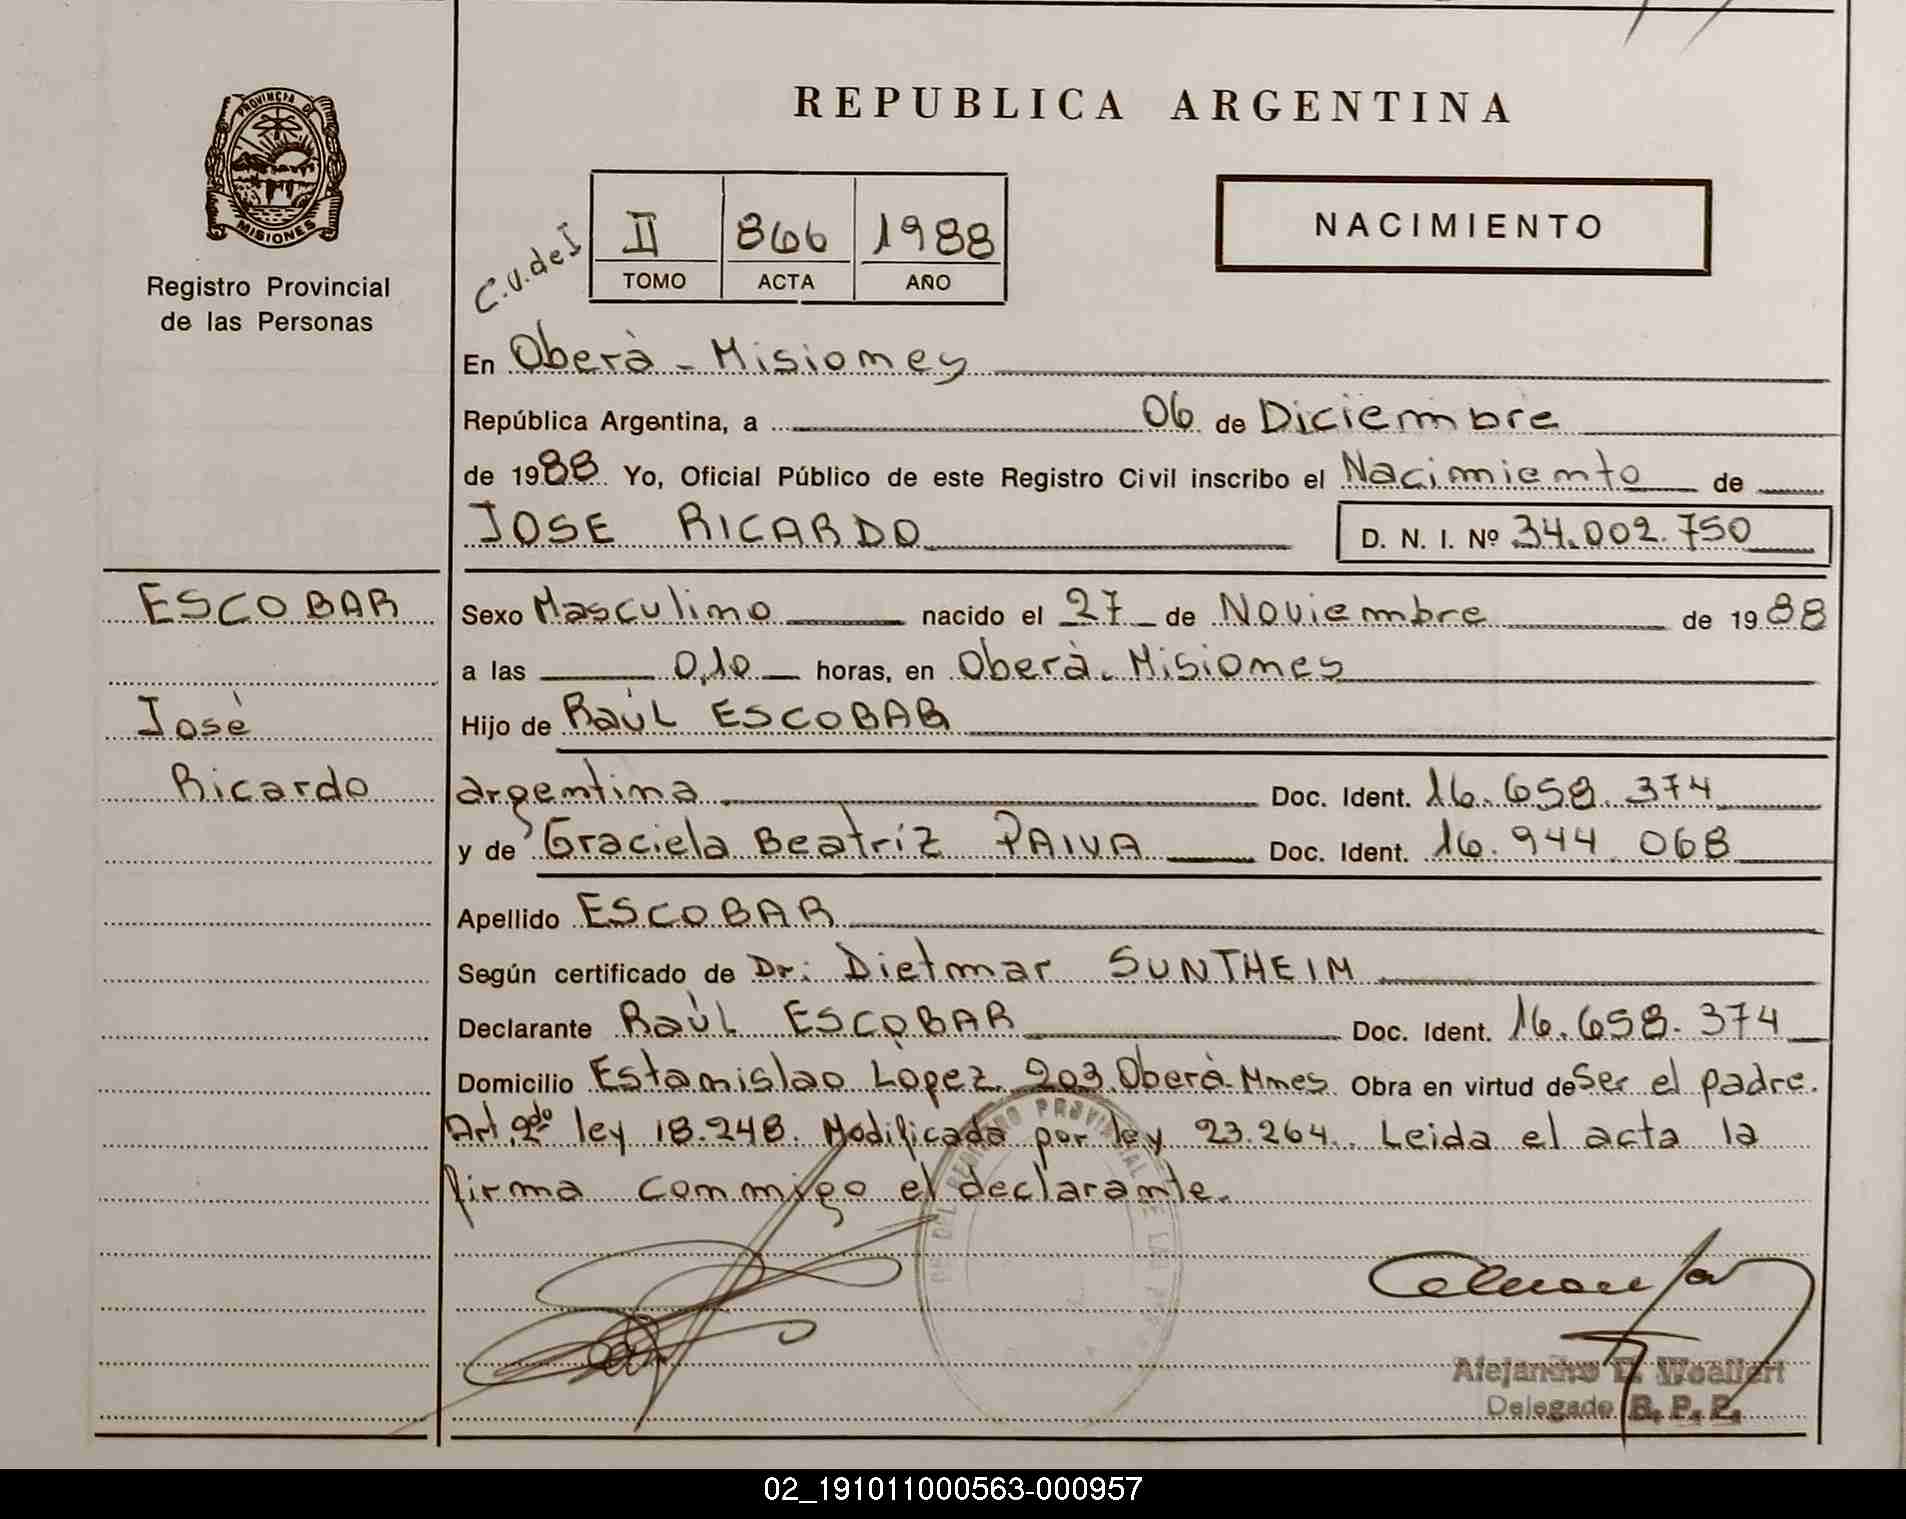 REPUBLICA ARGENTINA
PROVINCIA DE
MISIONES
Registro Provincial
de las Personas
C.V. de I
II 866 1988
TOMO ACTA AÑO
NACIMIENTO
En Oberà - Misiones
República Argentina, a 06 de Diciembre
de 1988 Yo, Oficial Público de este Registro Civil inscribo el Nacimiento de
JOSE RICARDO D. N. I. Nº 34.002.750
ESCOBAR
José
Ricardo
Sexo Masculino nacido el 27 de Noviembre de 1988
a las 0,10 horas, en Oberà. Misiones
Hijo de RaúL ESCOBAR
argentina Doc. Ident. 16.658.374
y de Graciela Beatríz PAIVA Doc. Ident. 16.944.068
Apellido ESCOBAR
Según certificado de Dr: Dietmar SUNTHEIM
Declarante RaùL ESCOBAR Doc. Ident. 16.658.374
Domicilio Estanislao Lòpez 203 Oberà-Mnes Obra en virtud de Ser el padre.
Art. 2do ley 18.248. Modificada por ley 23.264. Leida el acta la
firma conmigo el declarante.
Alejandro
Delegado R. P. P.
02_191011000563-000957